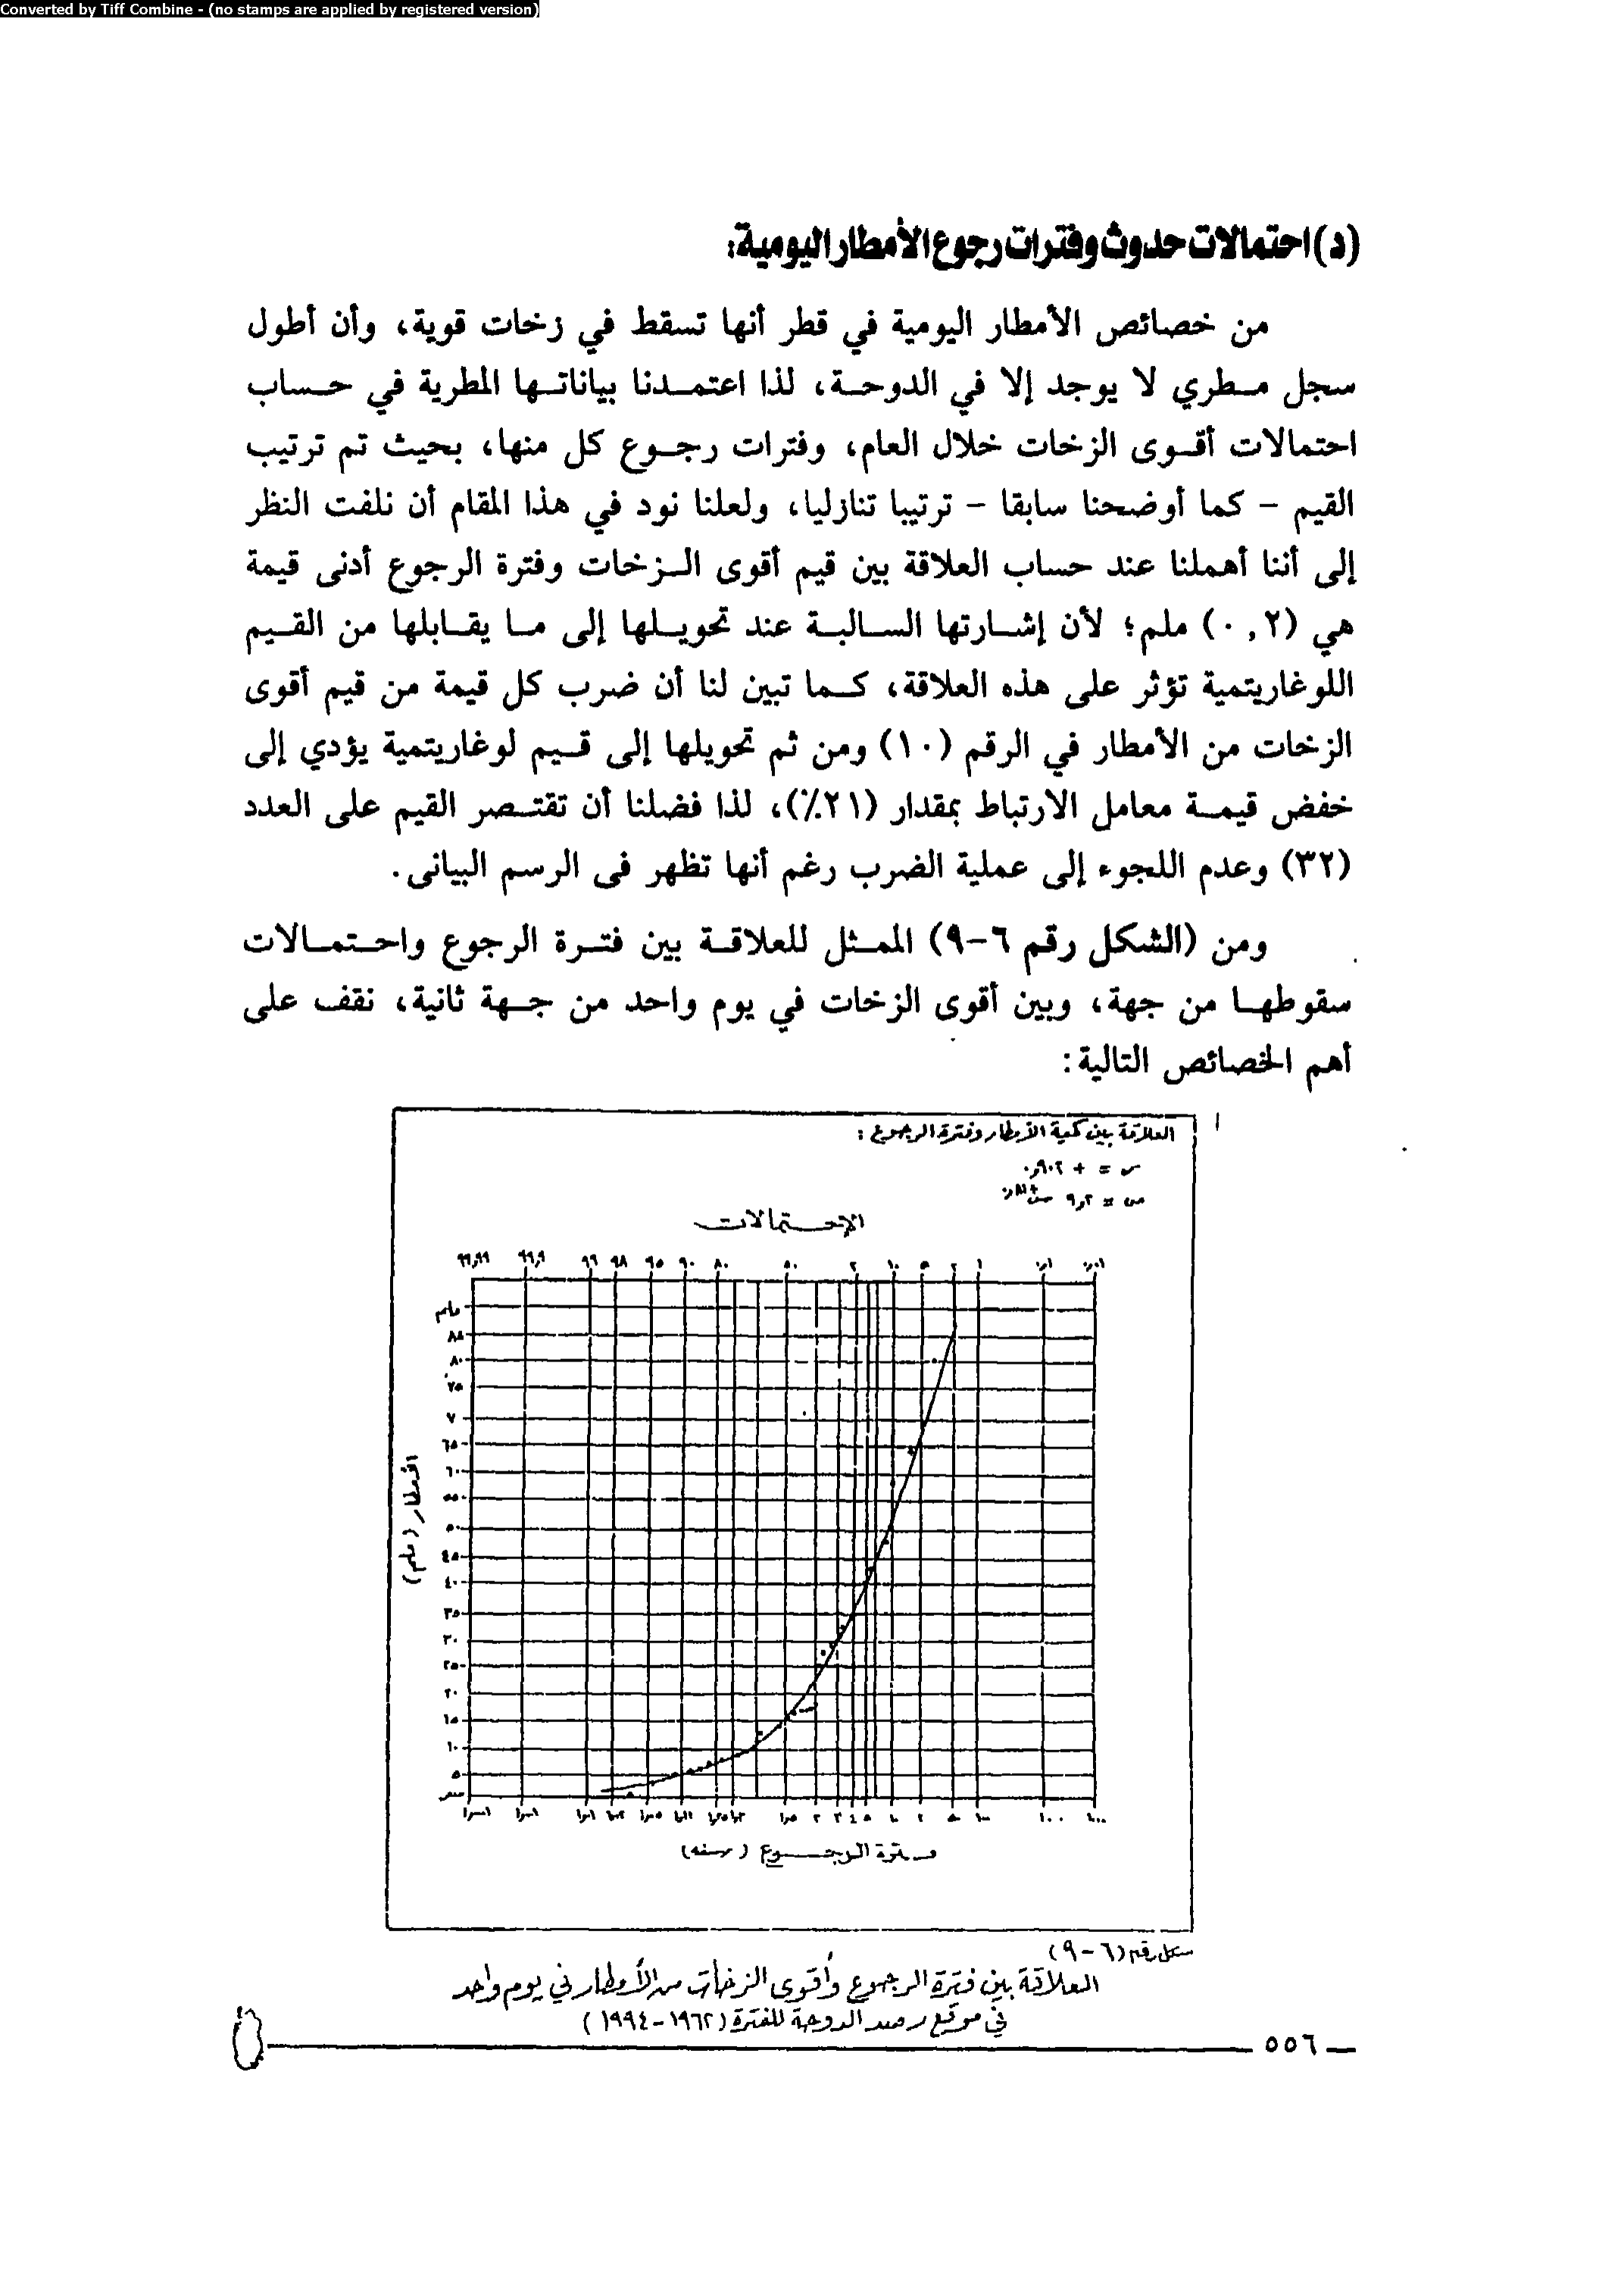 Converted by Tiff Combine - (no stamps are applied by registered version)
(د) احتمالات حدوث وفترات رجوع الأمطار اليومية:
من خصائص الأمطار اليومية في قطر أنها تسقط في زخات قوية، وأن أطول
سجل مطري لا يوجد إلا في الدوحة، لذا اعتمدنا بياناتها المطرية في حساب
احتمالات أقوى الزخات خلال العام، وفترات رجوع كل منها، بحيث تم ترتيب
القيم - كما أوضحنا سابقا - ترتيبا تنازليا، ولعلنا نود في هذا المقام أن نلفت النظر
إلى أننا أهملنا عند حساب العلاقة بين قيم أقوى الزخات وفترة الرجوع أدنى قيمة
هي (٠,٢) ملم؛ لأن إشارتها السالبة عند تحويلها إلى ما يقابلها من القيم
اللوغاريتمية تؤثر على هذه العلاقة، كما تبين لنا أن ضرب كل قيمة من قيم أقوى
الزخات من الأمطار في الرقم (١٠) ومن ثم تحويلها إلى قيم لوغاريتمية يؤدي إلى
خفض قيمة معامل الارتباط بمقدار (٢١٪)، لذا فضلنا أن تقتصر القيم على العدد
(٣٢) وعدم اللجوء إلى عملية الضرب رغم أنها تظهر فى الرسم البيانى.
ومن (الشكل رقم ٦-٩) الممثل للعلاقة بين فترة الرجوع واحتمالات
سقوطها من جهة، وبين أقوى الزخات في يوم واحد من جهة ثانية، نقف على
أهم الخصائص التالية:
العلاقة بين كمية الأمطار وفترة الرجوع:
الإحتمالات
٩٩,٩٩ ٩٩,٩ ٩٩ ٩٨ ٩٥ ٩٠ ٨٠ ٥٠ ٢٠ ١٠ ٥ ٢ ١
ملم
٨٥
٨٠
٧٥
٧٠
٦٥
٦٠
٥٥
٥٠
٤٥
٤٠
٣٥
٣٠
٢٥
٢٠
١٥
١٠
٥
صفر
الأمطار (ملم)
فترة الرجوع (سنة)
شكل رقم (٦-٩)
العلاقة بين فترة الرجوع وأقوى الزخات من الأمطار في يوم واحد
في موقع رصد الدوحة للفترة (١٩٦٢-١٩٩٤)
٥٥٦